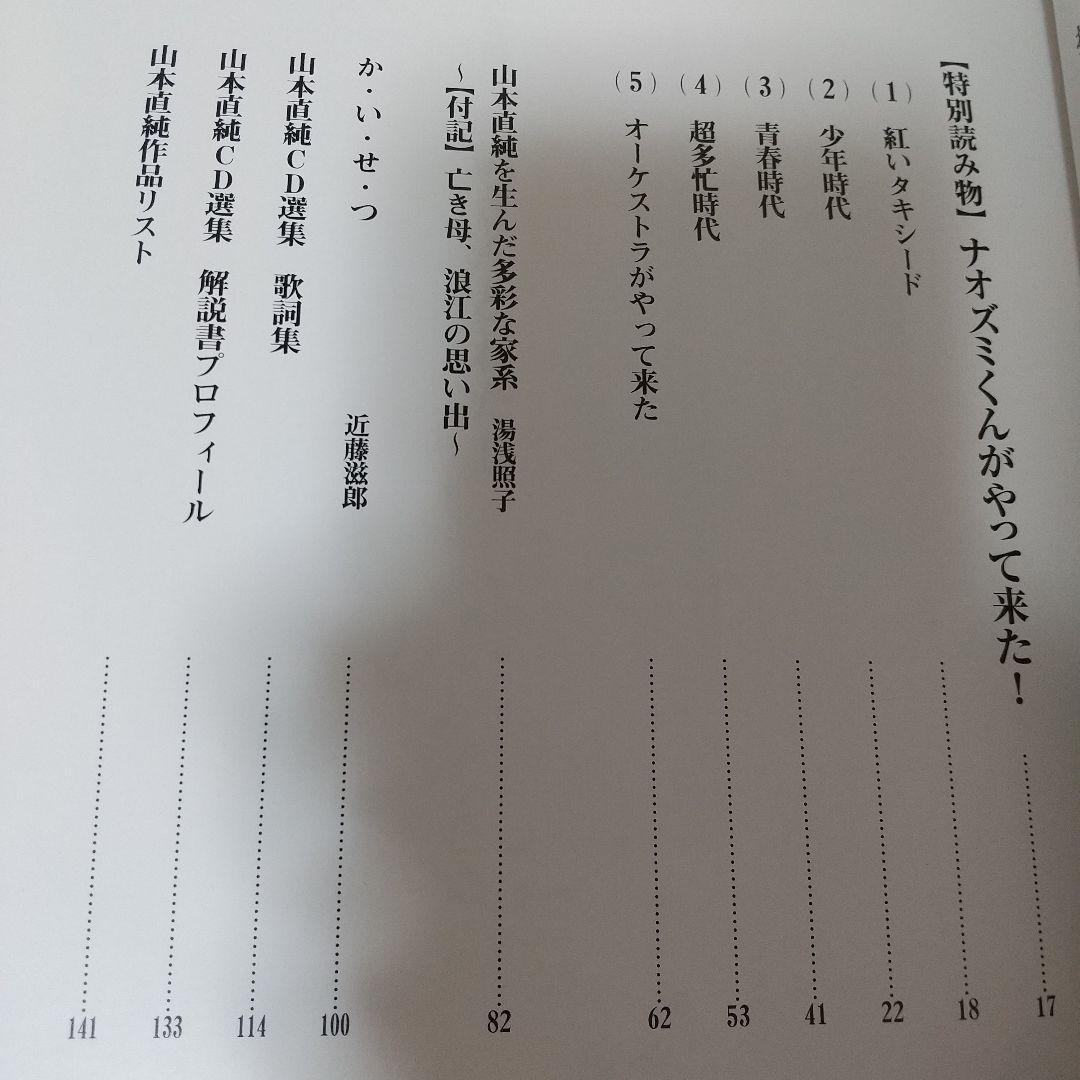 【特別読み物】ナオズミくんがやって来た！……17
(1) 紅いタキシード……18
(2) 少年時代……22
(3) 青春時代……41
(4) 超多忙時代……53
(5) オーケストラがやって来た……62
山本直純を生んだ多彩な家系 湯浅照子……82
～【付記】亡き母、浪江の思い出～
か・い・せ・つ 近藤滋郎……100
山本直純CD選集 歌詞集……114
山本直純CD選集 解説書プロフィール……133
山本直純作品リスト……141